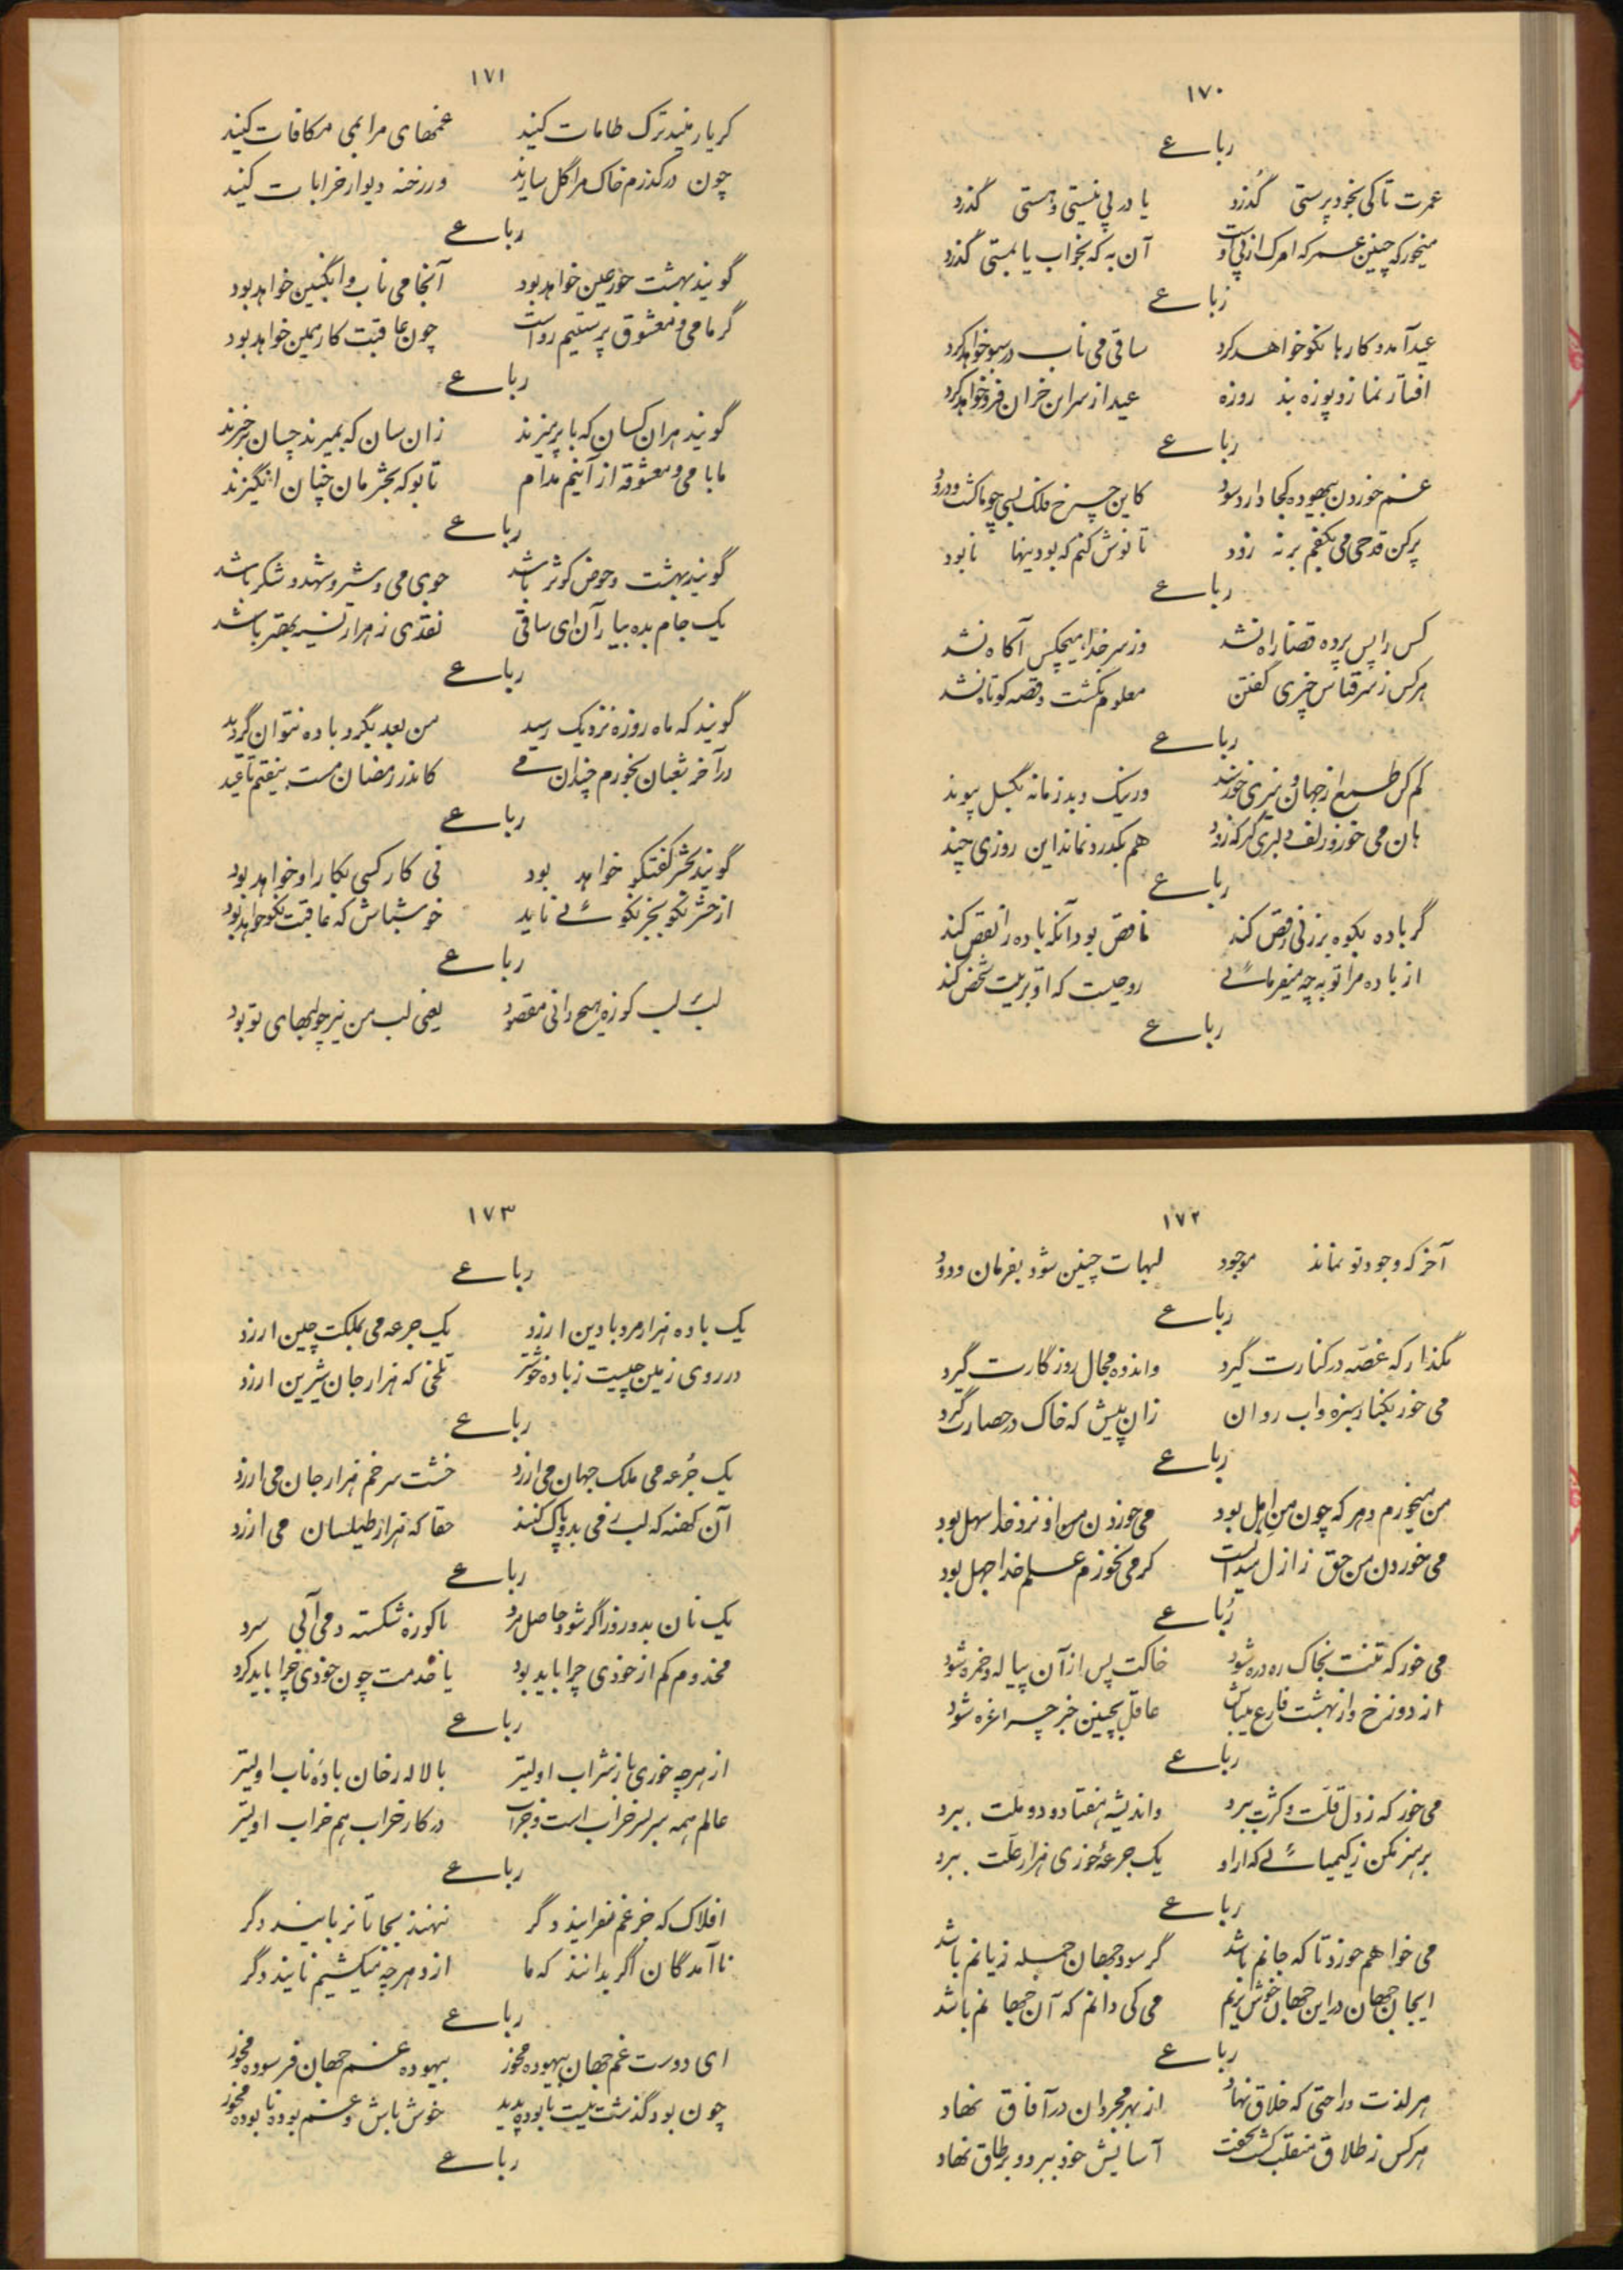 ۱۷۰
رباعے
عمرت تا کی بخود پرستی گذرد یا در پی نیستی و هستی گذرد
میخور که چنین عمر که مرگ از پی اوست آن به که بخواب یا بمستی گذرد
رباعے
عید آمد و کارها نکو خواهد کرد ساقی می ناب در سبو خواهد کرد
افسار نماز و پوزه بند روزه عید از سر این خران فرو خواهد کرد
رباعے
غم خوردن بیهوده کجا دارد سود کاین چرخ فلک بسی چو ما کشت و درود
پر کن قدحی می بکفم بر نه زود تا نوش کنم که بودنیها نابود
رباعے
کس را پس پرده قضا راه نشد وز سر خدا هیچکس آگاه نشد
هر کس ز سر قیاس چیزی گفتن معلوم نگشت و قصه کوتاه نشد
رباعے
کم کن طمع از جهان و میزی خورسند وز نیک و بد زمانه بگسل پیوند
هان می خور و زلف دلبری گیر که زود هم بگذرد و نماند این روزی چند
رباعے
گر باده بکوه بر زنی رقص کند ناقص بود آنکه باده را نقص کند
از باده مرا توبه چه میفرمائے روحیست که او تربیت شخص کند
رباعے
۱۷۱
کر یار منید ترک طامات کنید غمهای مرا بمی مکافات کنید
چون درگذرم خاک مرا گل سازید در رخنه دیوار خرابات کنید
رباعے
گویند بهشت حور عین خواهد بود آنجا می ناب و انگبین خواهد بود
گر ما می و معشوق پرستیم رواست چون عاقبت کار همین خواهد بود
رباعے
گویند هر آن کسان که با پرهیزند زان سان که بمیرند چنان برخیزند
ما با می و معشوقه از آنیم مدام تا بو که بحشرمان چنان انگیزند
رباعے
گویند بهشت و حوض کوثر باشد جوی می و شیر و شهد و شکر باشد
یک جام بده بیاد آن ای ساقی نقدی ز هزار نسیه بهتر باشد
رباعے
گویند که ماه روزه نزدیک رسید من بعد بگرد باده نتوان گردید
در آخر شعبان بخورم چندان مے کاندر رمضان مست بیفتم تا عید
رباعے
گویند بحشر گفتگو خواهد بود نی کار کسی بکار او خواهد بود
از حشر نکو بجز نکوئے ناید خوشباش که عاقبت نکو خواهد بود
رباعے
لب بر لب کوزه هیچ دانی مقصود یعنی لب من نیز چو لبهای تو بود
۱۷۲
آخر که وجود تو نماند موجود لبهات چنین شود بفرمان ودود
رباعے
مگذار که غصه در کنارت گیرد و اندوه مجال روزگارت گیرد
می خور بکنار سبزه و اب روان زان پیش که خاک در حصارت گیرد
رباعے
من میخورم و هر که چون من اهل بود می خوردن من او نزد خدا سهل بود
می خوردن من حق ز ازل میدانست کر می نخورم علم خدا جهل بود
رباعے
می خور که تنت بخاک در ذره شود خاکت پس از آن پیاله و خمره شود
از دوزخ و از بهشت فارغ میباش عاقل بچنین خبر چرا غره شود
رباعے
می خور که ز دل قلت و کثرت ببرد و اندیشه هفتاد و دو ملت ببرد
پرهیز مکن ز کیمیائے که از او یک جرعه خوری هزار علت ببرد
رباعے
می خواهم خورد تا که جانم باشد گر سود جهان جمله زیانم باشد
ایجان جهان در این جهان خوش بزیم می کی دانم که آن جهانم باشد
رباعے
هر لذت و راحتی که خلاق نهاد از بهر مجردان در آفاق نهاد
هر کس ز طلاق منقلب گشت بجفت آسایش خود ببرد و بر طاق نهاد
۱۷۳
رباعے
یک باده هزار مرد با دین ارزد یک جرعه می بملکت چین ارزد
در روی زمین چیست ز باده خوشتر تلخی که هزار جان شیرین ارزد
رباعے
یک جرعه می ملک جهان می ارزد خشت سر خم هزار جان می ارزد
آن کهنه که لب ز می بدو پاک کنند حقا که هزار طیلسان می ارزد
رباعے
یک نان بدو روز اگر شود حاصل مرد با کوزه شکسته و می آبی سرد
مخدوم کم از خودی چرا باید بود یا خدمت چون خودی چرا باید کرد
رباعے
از هرچه خوری باز شراب اولیتر با لاله رخان باده ناب اولیتر
عالم همه سربسر خراب است و خراب در کار خراب هم خراب اولیتر
رباعے
افلاک که جز غم نفزایند دگر ننهند بجا تا نربایند دگر
ناآمدگان اگر بدانند که ما از دهر چه میکشیم نایند دگر
رباعے
ای دوست غم جهان بیهوده مخور بیهوده غم جهان فرسوده مخور
چون بود گذشت نیست نابوده پدید خوش باش و غم بوده و نابوده مخور
رباعے